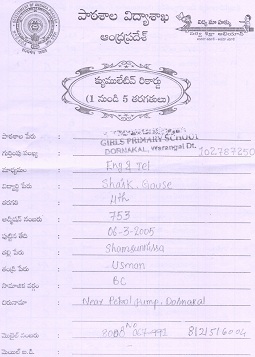 పాఠశాల విద్యాశాఖ
ఆంధ్రప్రదేశ్
క్యుములేటివ్ రికార్డు
(1 నుండి 5 తరగతులు)
పాఠశాల పేరు :
GIRLS PRIMARY SCHOOL
DORNAKAL, Warangal Dt.
గుర్తింపు సంఖ్య :
మాధ్యమం : Eng & Tel
విద్యార్థి పేరు : Shaik Gouse
తరగతి : 4th
అడ్మిషన్ నంబరు : 753
పుట్టిన తేది : 06-3-2005
తల్లి పేరు : Shamsunnisa
తండ్రి పేరు : Usman
సామాజిక వర్గం : BC
చిరునామా : Near Petrol Pump, Dornakal
మొబైల్ నంబరు :
మెయిల్ ఐ.డి. :